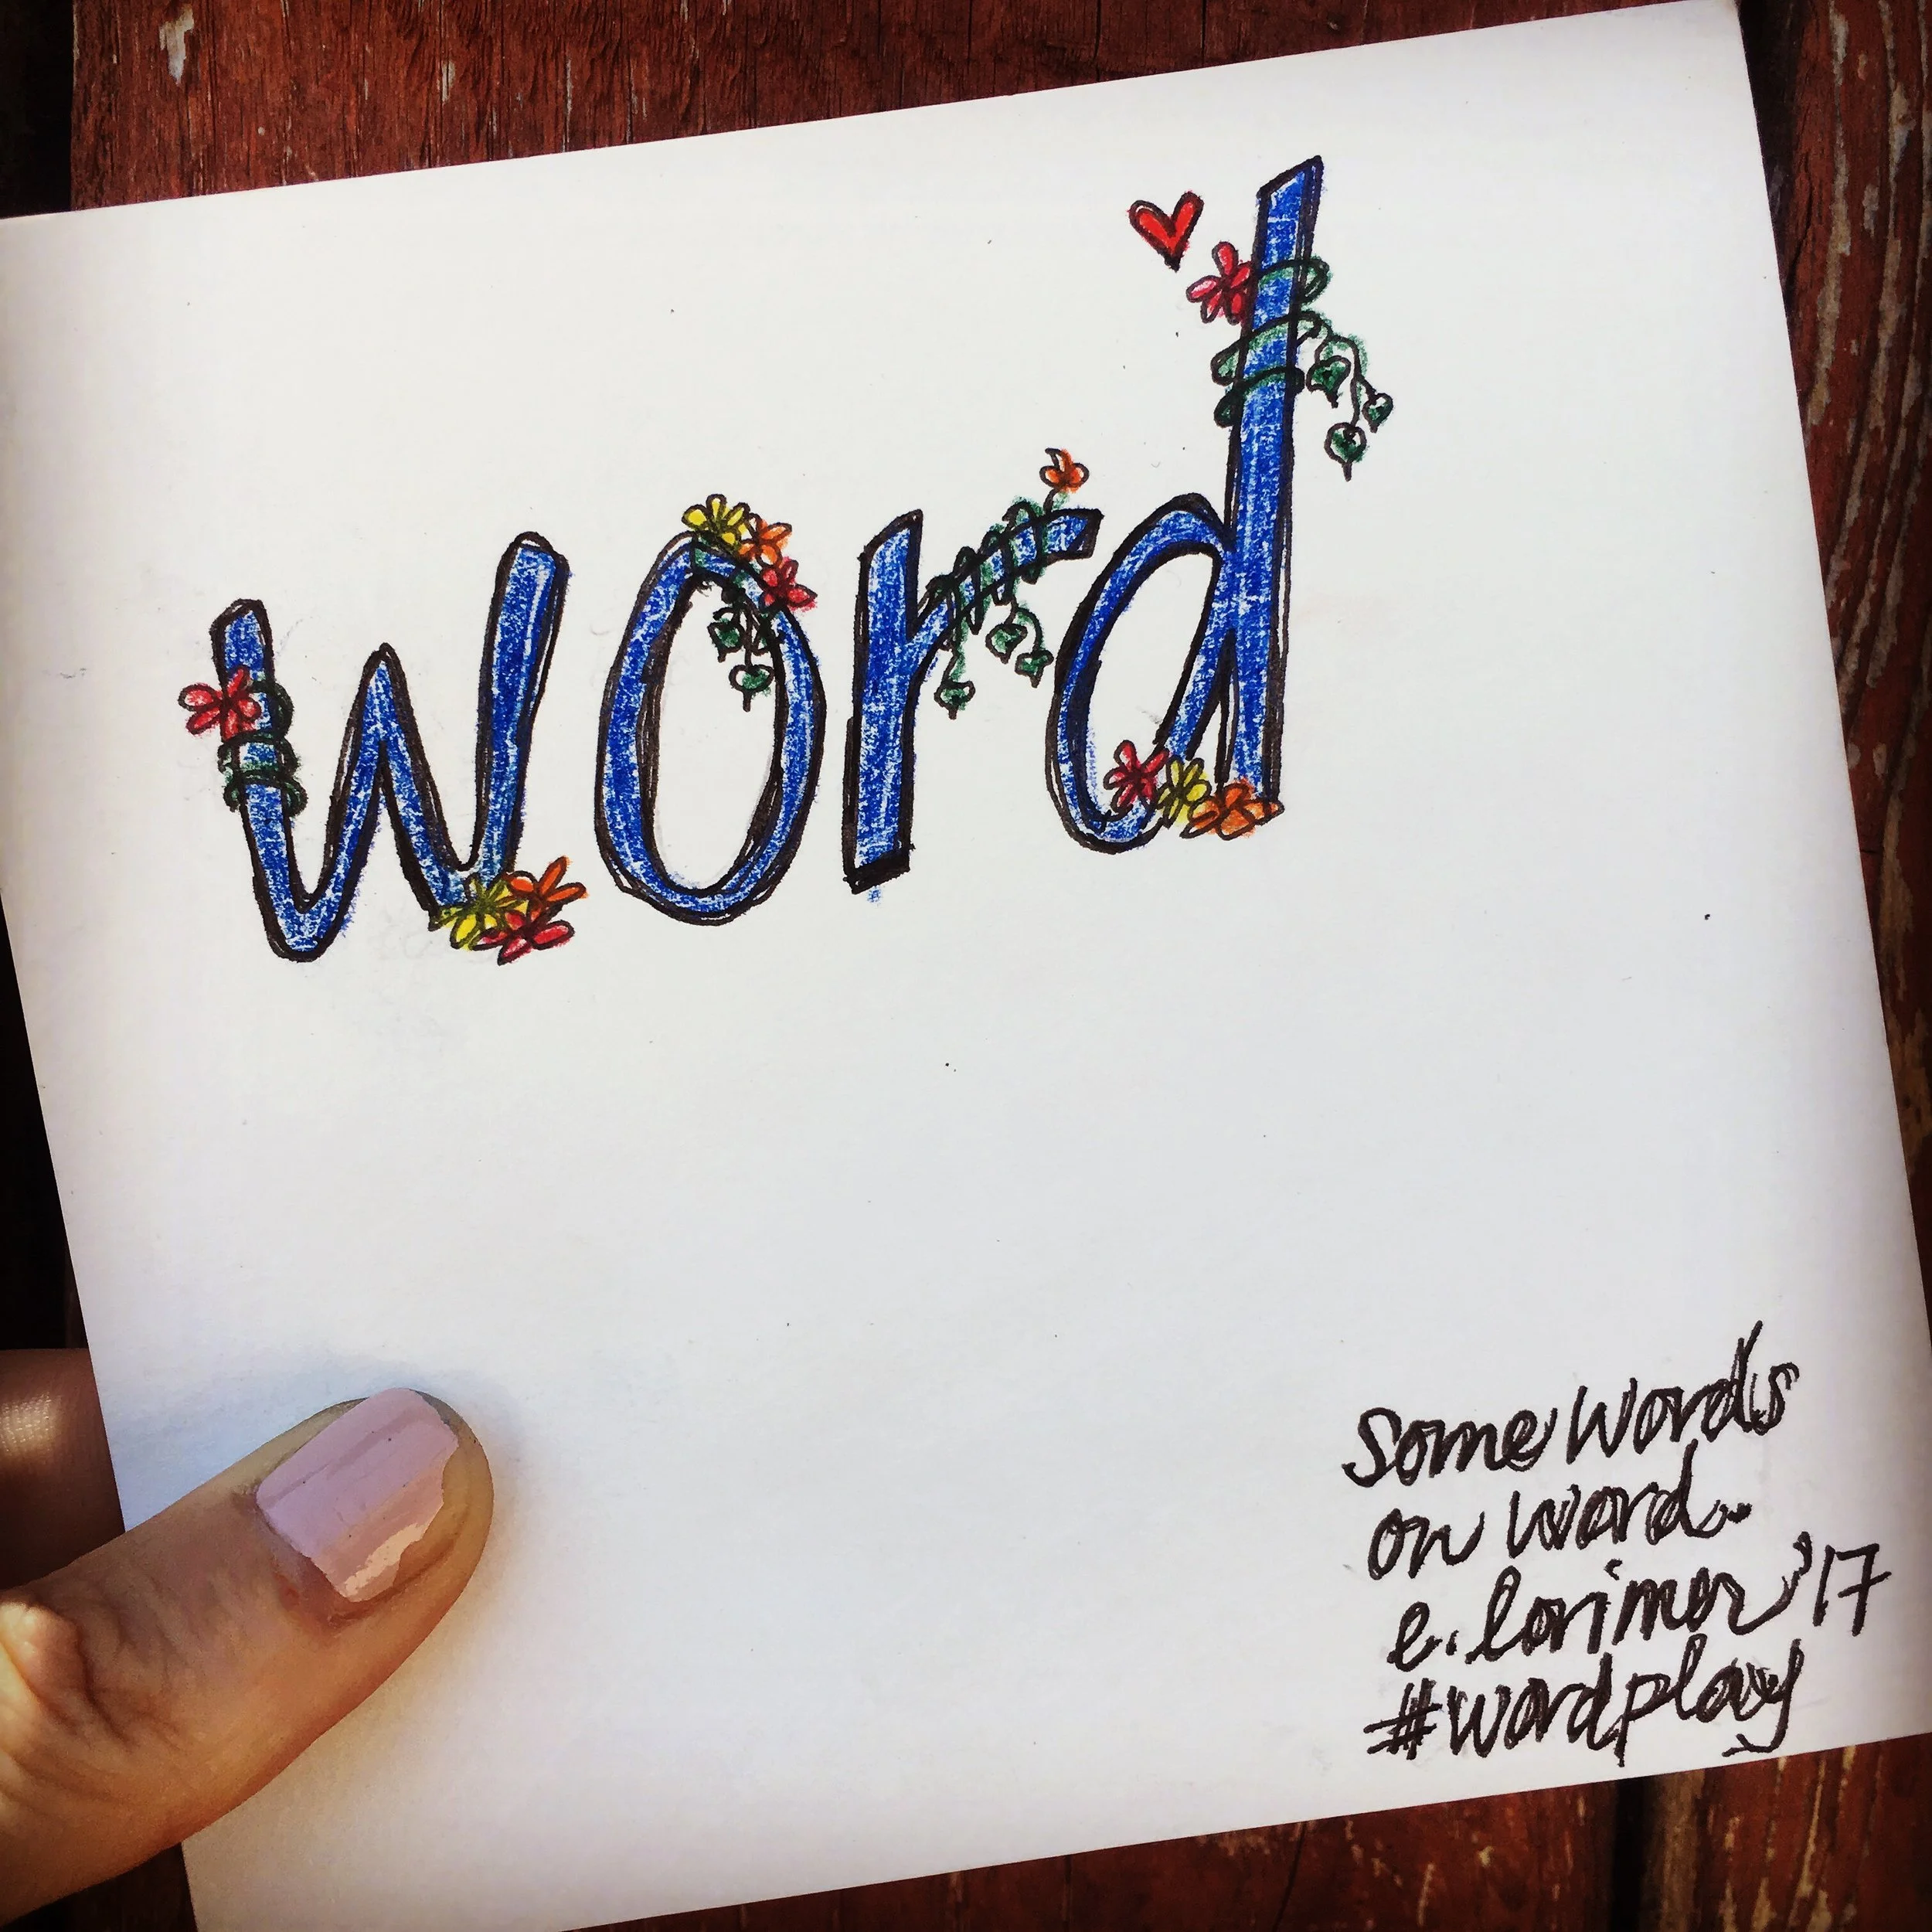 word
some words
on word..
e. lorimer '17
#wordplay